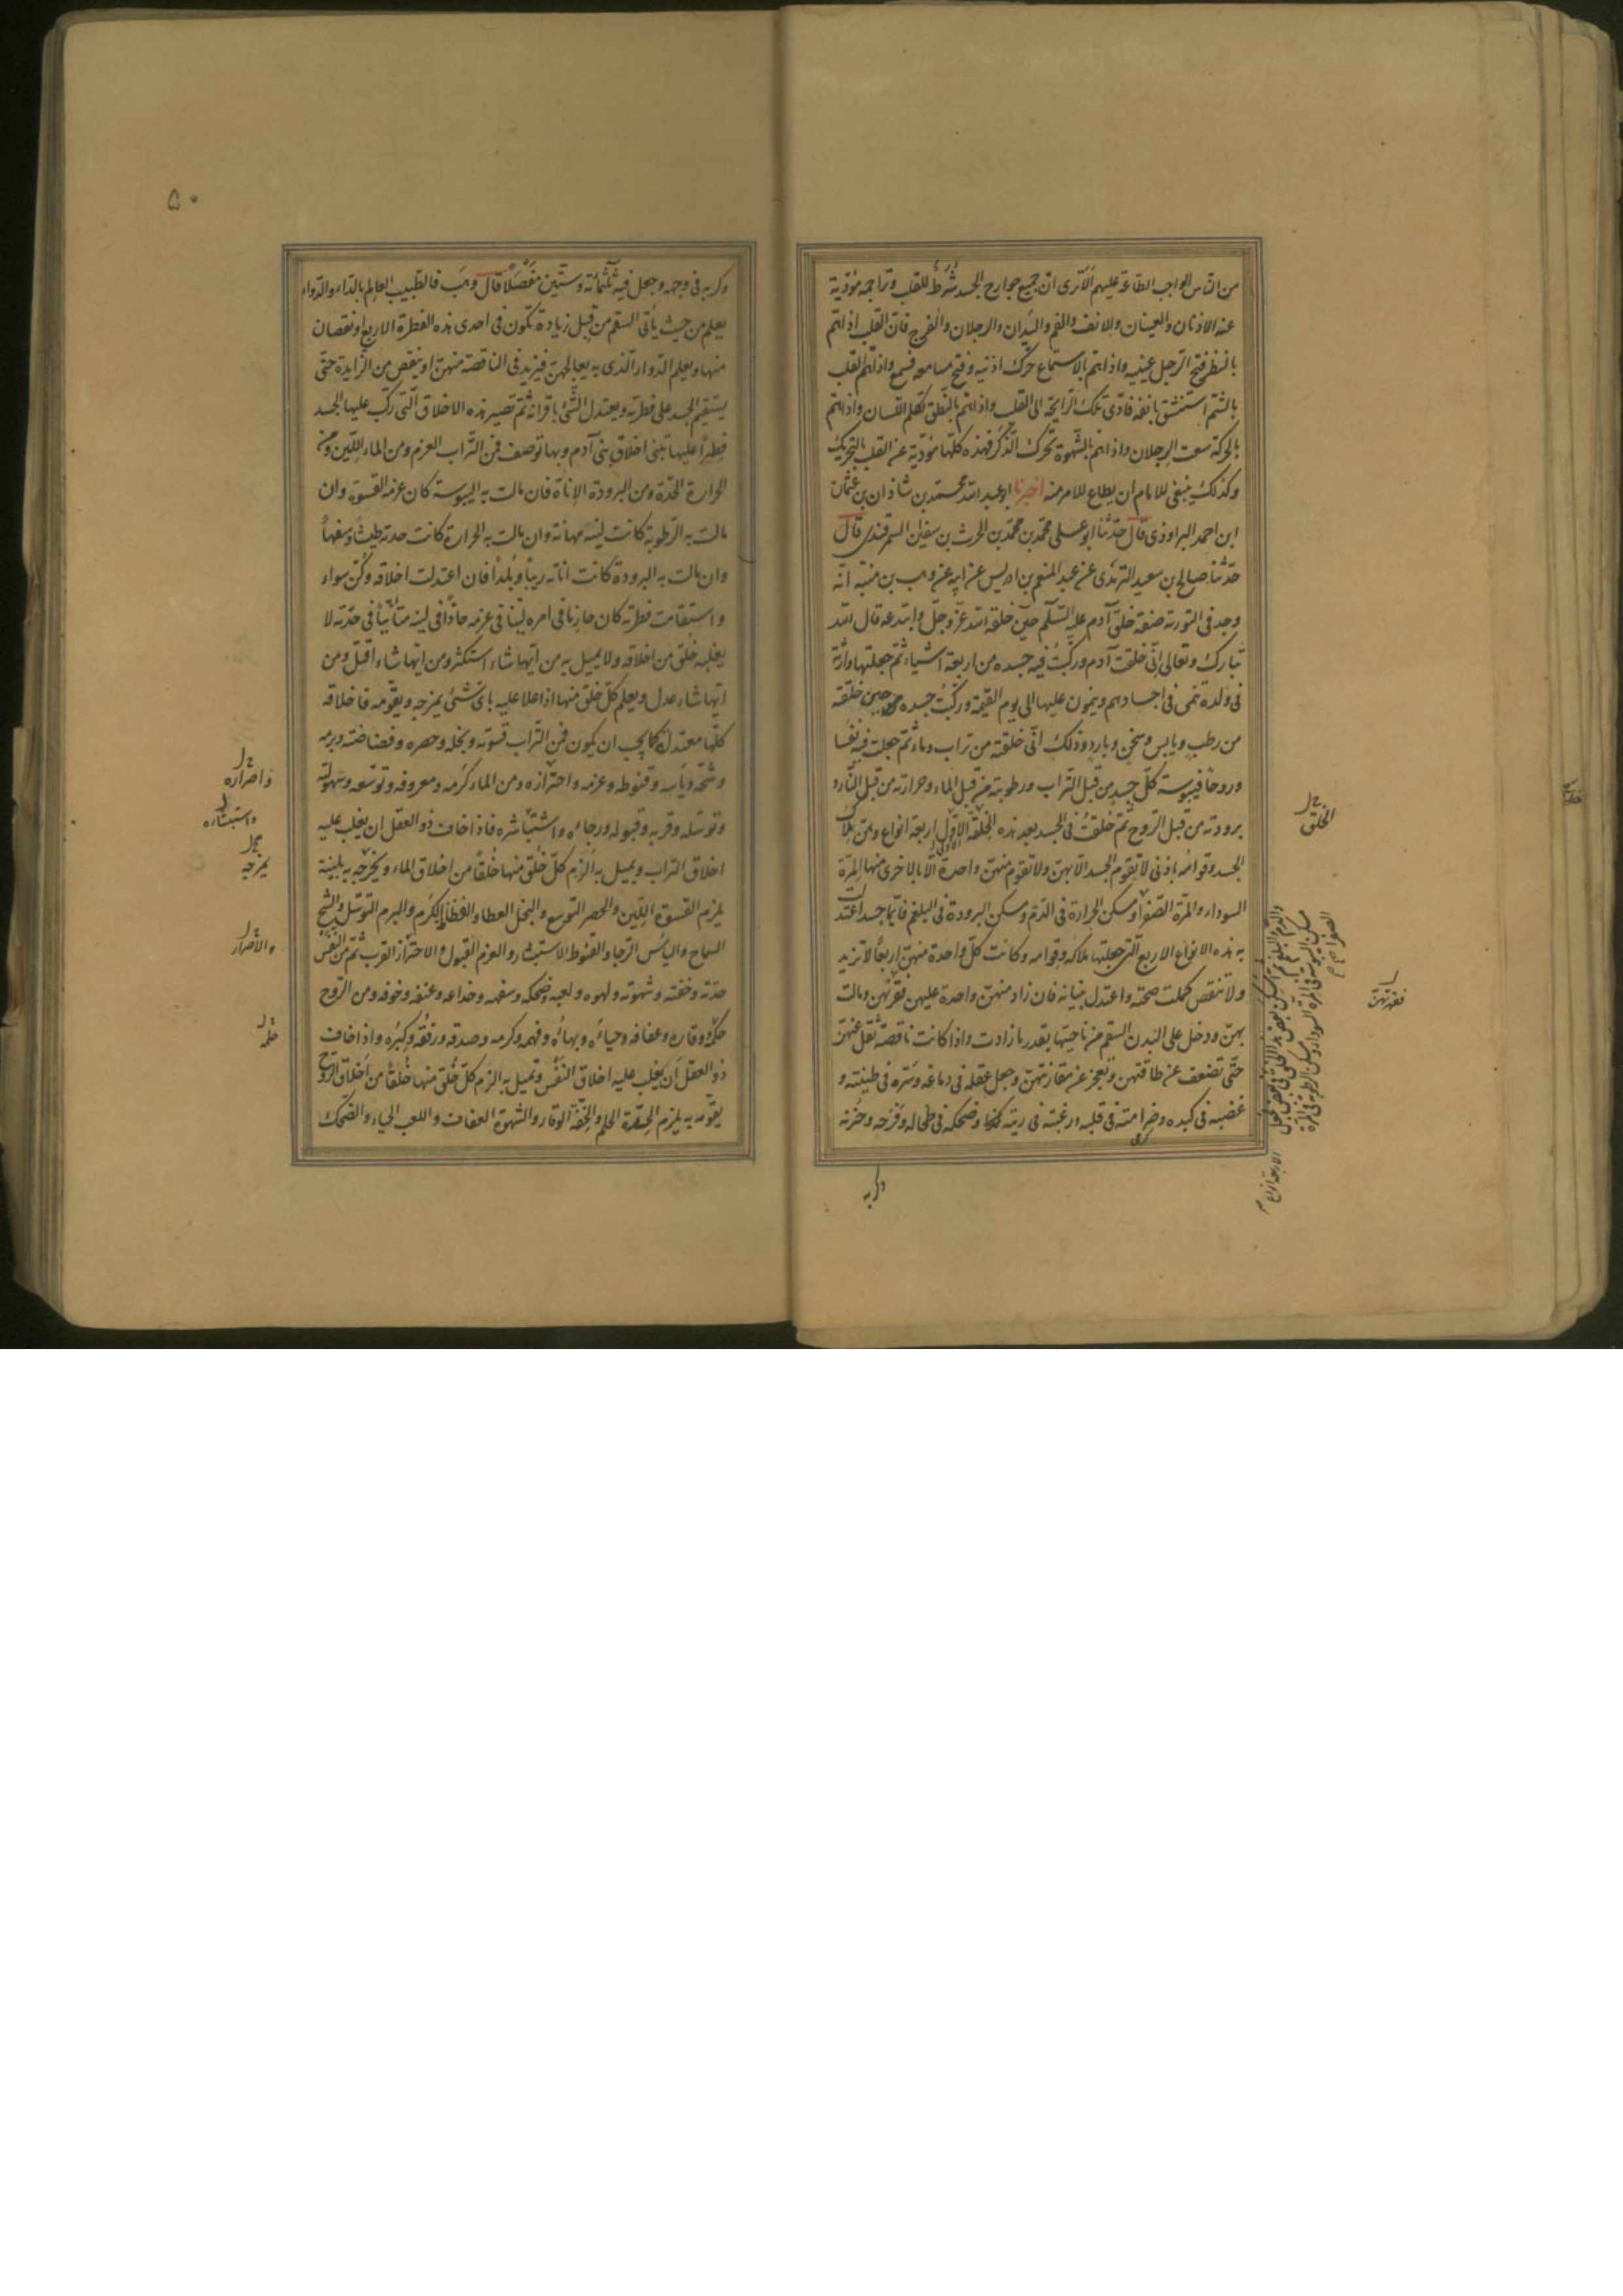 من الناس الواجب الطاعة عليهم الا ترى ان جميع جوارح الجسد شرط للقلب وتراجمه مؤدية
عنه الاذنان والعينان والانف والفم واليدان والرجلان والفرج فان القلب اذا هم
بالنظر فتح الرجل عينيه واذا هم بالاستماع حرك اذنيه وفتح مسامعه فسمع واذا هم القلب
بالشم استنشق بانفه فادى تلك الرايحة الى القلب واذا هم بالنطق تكلم اللسان واذا هم
بالحركة سعت الرجلان واذا هم بالشهوة تحرك الذكر فهذه كلها مؤدية عن القلب بالتحريك
وكذلك ينبغى للامام ان يطاع للامر منه اخبرنا ابو عبد الله محمد بن شاذان بن عثمان
ابن احمد البراوذى قال حدثنا ابو على محمد بن محمد بن الحرث بن سفين السمرقندى قال
حدثنا صالح بن سعيد الترمذى عن عبد المنعم بن ادريس عن ابيه عن وهب بن منبه انه
وجد فى التورية صفة خلق آدم عليه السلم حين خلقه الله عز وجل وابتدعه قال الله
تبارك وتعالى انى خلقت آدم وركبت فيه جسده من اربعة اشياء ثم جعلتها وراثة
فى ولده تنمى فى اجسادهم وينمون عليها الى يوم القيمة وركبت جسده حين خلقته
من رطب ويابس وسخن وبارد وذلك انى خلقته من تراب وماء ثم جعلت فيه نفسا
وروحا فيبوسة كل جسد من قبل التراب ورطوبته من قبل الماء وحرارته من قبل النار و
برودته من قبل الروح ثم خلقت فى الجسد بعد هذه الخلقة الاول اربعة انواع وهن ملاك
الجسد وقوامه باذنى لا يقوم الجسد الا بهن ولا تقوم منهن واحدة الا بالاخرى منها المرة
السوداء والمرة الصفرا ومسكن الحرارة فى الدم ومسكن البرودة فى البلغم فايما جسد اعتدلت
به هذه الانواع الاربع التى جعلتها ملاكه وقوامه وكانت كل واحدة منهن اربعا لا تزيد
ولا تنقص كملت صحته واعتدل بنيانه فان زاد منهن واحدة عليهن قهرتهن ومالت
بهن ودخل على البدن السقم من ناحيتها بقدر ما زادت واذا كانت ناقصة تقل عنهن
حتى تضعف عن طاقتهن وتعجز عن مقارنتهن وجعل عقله فى دماغه وسره فى طينته و
غضبه فى كبده وضرامته فى قلبه ورغبته فى ريته وضحكه فى طحاله وفرحه وحزنه
وكربه
الخلق
فقهرتهن
والدم والبلغم ثم اسكن بعض هذه الخلق فى بعض فجعل
مسكن اليبوسة فى المرة السوداء ومسكن الرطوبة فى المرة
الصفرا
الاربعة انواع
٥٠
وكربه فى وجهه وجعل فيه ثلثمائة وستين مفصلا قال وهب فالطبيب العالم بالداء والدواء
يعلم من حيث ياتى السقم من قبل زيادة تكون فى احدى هذه الفطرة الاربع او نقصان
منها ويعلم الدواء الذى به يعالجهن فيزيد فى الناقصة منهن او ينقص من الزايدة حتى
يستقيم الجسد على فطرته ويعتدل الشئ باقرانه ثم تصير هذه الاخلاق التى ركب عليها الجسد
فطرا عليها تبنى اخلاق بنى آدم وبها توصف فمن التراب العزم ومن الماء اللين ومن
الحرارة الحدة ومن البرودة الاناة فان مالت به اليبوسة كان عزمه القسوة وان
مالت به الرطوبة كانت لينه مهانة وان مالت به الحرارة كانت حدته طيشا وسفها
وان مالت به البرودة كانت اناته ريبا وبلدا فان اعتدلت اخلاقه وكن سواء
واستقامت فطرته كان حازما فى امره لينا فى عزمه حادا فى لينه متأنيا فى حدته لا
يغلبه خلق من اخلاقه ولا يميل به من ايها شاء استكثر ومن ايها شاء اقل ومن
ايها شاء عدل ويعلم كل خلق منها اذا علا عليه باى شئ يمزجه ويقومه فاخلاقه
كلها معتدلة كما يجب ان يكون فمن التراب قسوته وبخله وحصره وفضاضته وبرمه
وشحه ويأسه وقنوطه وعزمه واحترازه ومن الماء كرمه ومعروفه وتوسعه وسهولته
وتوسله وقربه وقبوله ورجاءه واستبشاره فاذا خاف ذو العقل ان يغلب عليه
اخلاق التراب ويميل به الزم كل خلق منها خلقا من اخلاق الماء ويخرجه به بلينة
يلزم القسوة اللين والحصر التوسع والبخل العطا والفظاظة الكرم والبرم التوسل والشح
السماح والياس الرجا والقنوط الاستبشار والعزم القبول والاحتراز القرب ثم من النفس
حدته وخفته وشهوته ولهوه ولعبه وضحكه وسفهه وخداعه وعنفه وخوفه ومن الروح
حكمه ووقاره وعفافه وحياءه وبهاءه وفهمه وكرمه وصدقه ورفقه وكبره واذا خاف
ذو العقل ان يغلب عليه اخلاق النفس وتميل به الزم كل خلق منها خلقا من اخلاق الروح
يقومه به يلزم الحدة الحلم والخفة الوقار والشهوة العفاف واللعب الحياء والضحك
واصراره
واستبشاره
يمزجه
والاصرار
حلمه